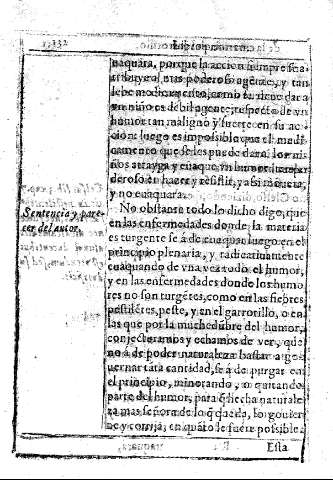 naquara, porque la accion siempre se a-
tribuye al mas poderoso agente, y tan
debe mouimento, como
vn niño es debil agente, respecto de vn
humor tan maligno y fuerte en su ac
cion: luego es impossible que el medi
camento que se les puede dar a los ni
ños atrayga y euaque vn humor
deroso en hazer y resistir, y assi mouera,
y no euaquara.
No obstante todo lo dicho digo, que
en las enfermedades donde la materia
es turgente se á de euaquar luego en el
principio plenaria, y radicatiuamente
euaquando de vna vez todo el humor,
y en las enfermedades donde los humo
res no son turgétes, como en las fiebres
pestilétes, peste, y en el garrotillo, o en
las que por la muchedúbre del humor,
conjecturamos y echamos de ver, que
no á de poder naturaleza bastar a go-
uernar táta cantidad, se á de purgar en
el principio, minorando, o quitando
parte del humor, para q̃ hecha naturale
za mas señora de lo q̃ queda, lo gouier
ne y corrija, en quáto le fuere possible.
Esta
Sentencia y pare-
cer del autor.